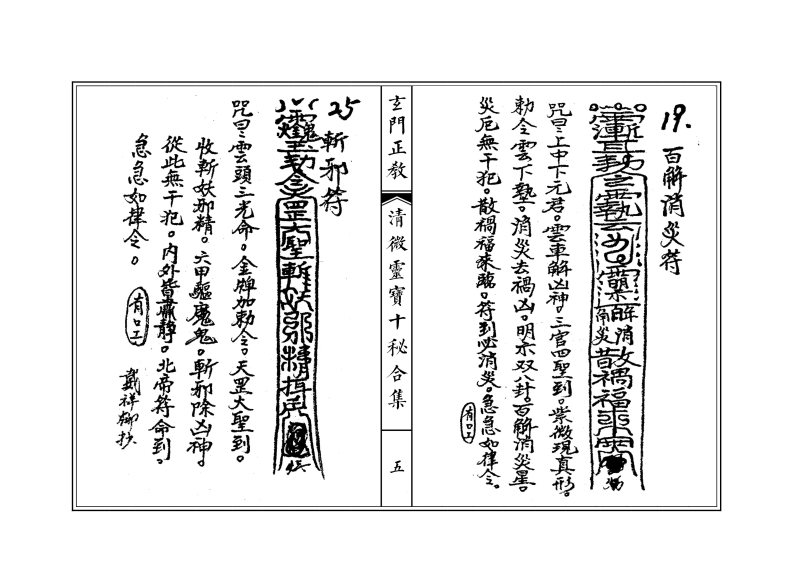 19. 百解消災符
咒曰：上中下元君。雲車解凶神。三官四聖到。紫微現真形。
勅令雲下執。消災去禍凶。明示双八卦。百解消災星。
災厄無干犯。散禍福來臨。符到必消災。急急如律令。
有口工
玄門正教
清微靈寶十秘合集
五
25 斬邪符
咒曰：雲頭三光命。金牌加勅令。天罡大聖到。
收斬妖邪精。六甲驅魔鬼。斬邪除凶神。
從此無干犯。內外皆肅靜。北帝符命到。
急急如律令。
有口工
戴祥柳抄